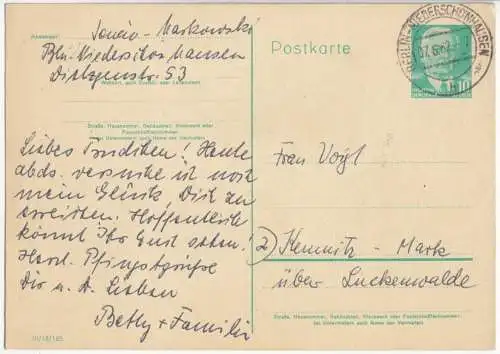 Absender:
Sonéa-Markowski
Bln. Niederschönhausen
Dietzgenstr. 53
Wohnort, auch Zustell- oder Leitpostamt
Straße, Hausnummer, Gebäudeteil, Stockwerk oder
Postschließfachnummer
bei Untermietern auch Name des Vermieters
Liebes ! Heute
abds. versuche ich noch
mein Glück, Dich zu
erreichen. Hoffentlich
könnt Ihr Gust sehen!
Herzl. Pfingstgrüße
Dir u. d. Lieben
Betty + Familie
III/18/185
Postkarte
BERLIN-NIEDERSCHÖNHAUSEN
10
Frau Voigt
2) Kemnitz - Mark
über Luckenwalde
Straße, Hausnummer, Gebäudeteil, Stockwerk oder Postschließfachnummer
bei Untermietern auch Name des Vermieters